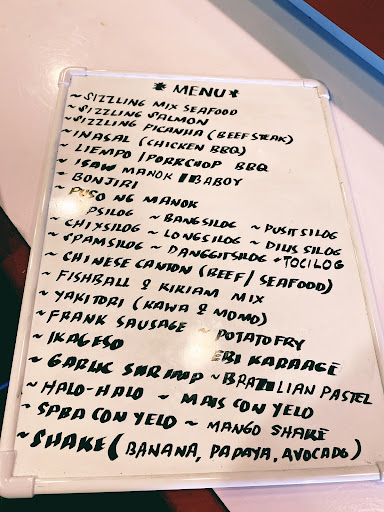 * MENU *
~ SIZZLING MIX SEAFOOD
~ SIZZLING SALMON
~ SIZZLING PICANHA (BEEF STEAK)
~ INASAL (CHICKEN BBQ)
~ LIEMPO / PORKCHOP BBQ
~ ISAW MANOK / BABOY
~ BONJIRI
~ PUSO NG MANOK
PSILOG ~ BANGSILOG ~ PUSIT SILOG
~ CHIXSILOG ~ LONGSILOG ~ DILIS SILOG
~ SPAMSILOG ~ DANGGITSILOG + TOCILOG
~ CHINESE CANTON (BEEF / SEAFOOD)
~ FISHBALL & KIKIAM MIX
~ YAKITORI (KAWA & MOMO)
~ FRANK SAUSAGE ~ POTATO FRY
~ IKAGESO EBI KARAAGE
~ GARLIC SHRIMP ~ BRAZILIAN PASTEL
~ HALO-HALO ~ MAIS CON YELO
~ SABA CON YELO ~ MANGO SHAKE
~ SHAKE (BANANA, PAPAYA, AVOCADO)